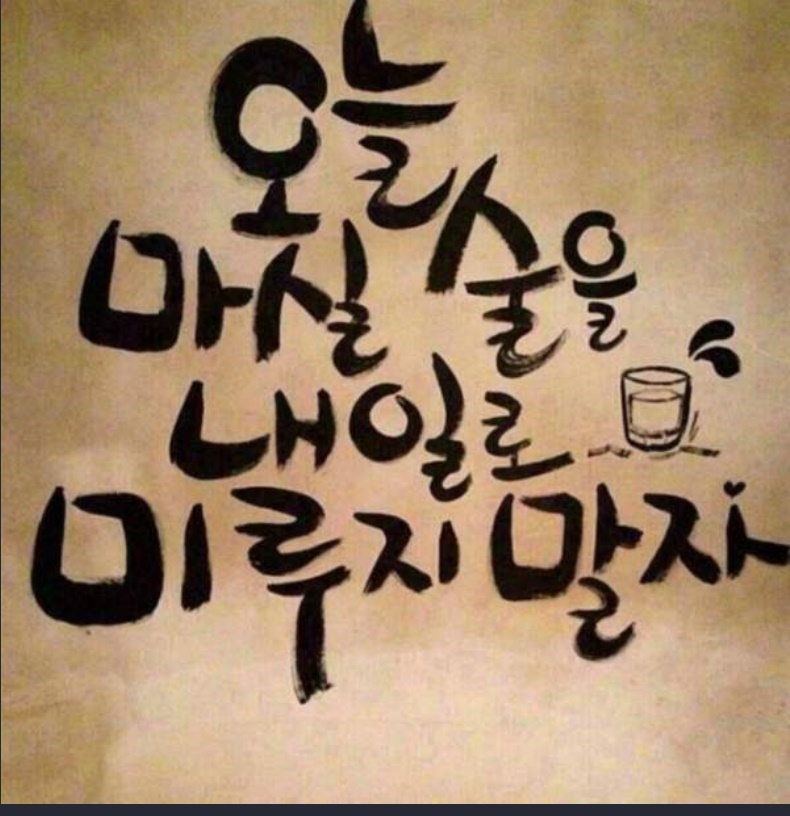 오늘
마실 술을
내일로
미루지 말자